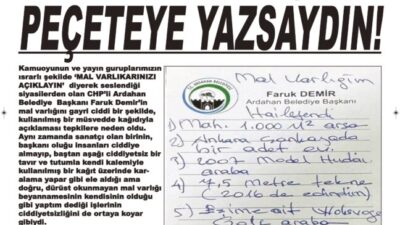 PEÇETEYE YAZSAYDIN!
Kamuoyunun ve yayın guruplarımızın
ısrarlı şekilde 'MAL VARLIKARINIZI
AÇIKLAYIN' diyerek seslendiği
siyasilerden olan CHP'li Ardahan
Belediye Başkanı Faruk Demir'in
mal varlığını gayri ciddi bir şekilde,
kullanılmış bir müsvedde kağıdıyla
açıklaması tepkilere neden oldu.
Aynı zamanda sanatçı olan birinin,
başkanı oluğu insanları ciddiye
almayıp, baştan aşağı ciddiyetsiz bir
tavır ve tutumla kendi kalemiyle
kullanılmış bir kağıt üzerinde kar-
alama yapar gibi ele aldığı ama
doğru, dürüst okunmayan mal varlığı
beyannamesinin kendisinin olduğu
gibi yaptım dediği işlerinin
ciddiyetsizliğini de ortaya koyar
gibiydi.
Mal Varlığım
Faruk DEMİR
Ardahan Belediye Başkanı
1) Mah. 1.000 M2 arsa
2) Ankara Çankayada
bir adet evi
3) 2007 Model
araba
4) 7,5 metre tekne
5) Eşime ait
Golf araba